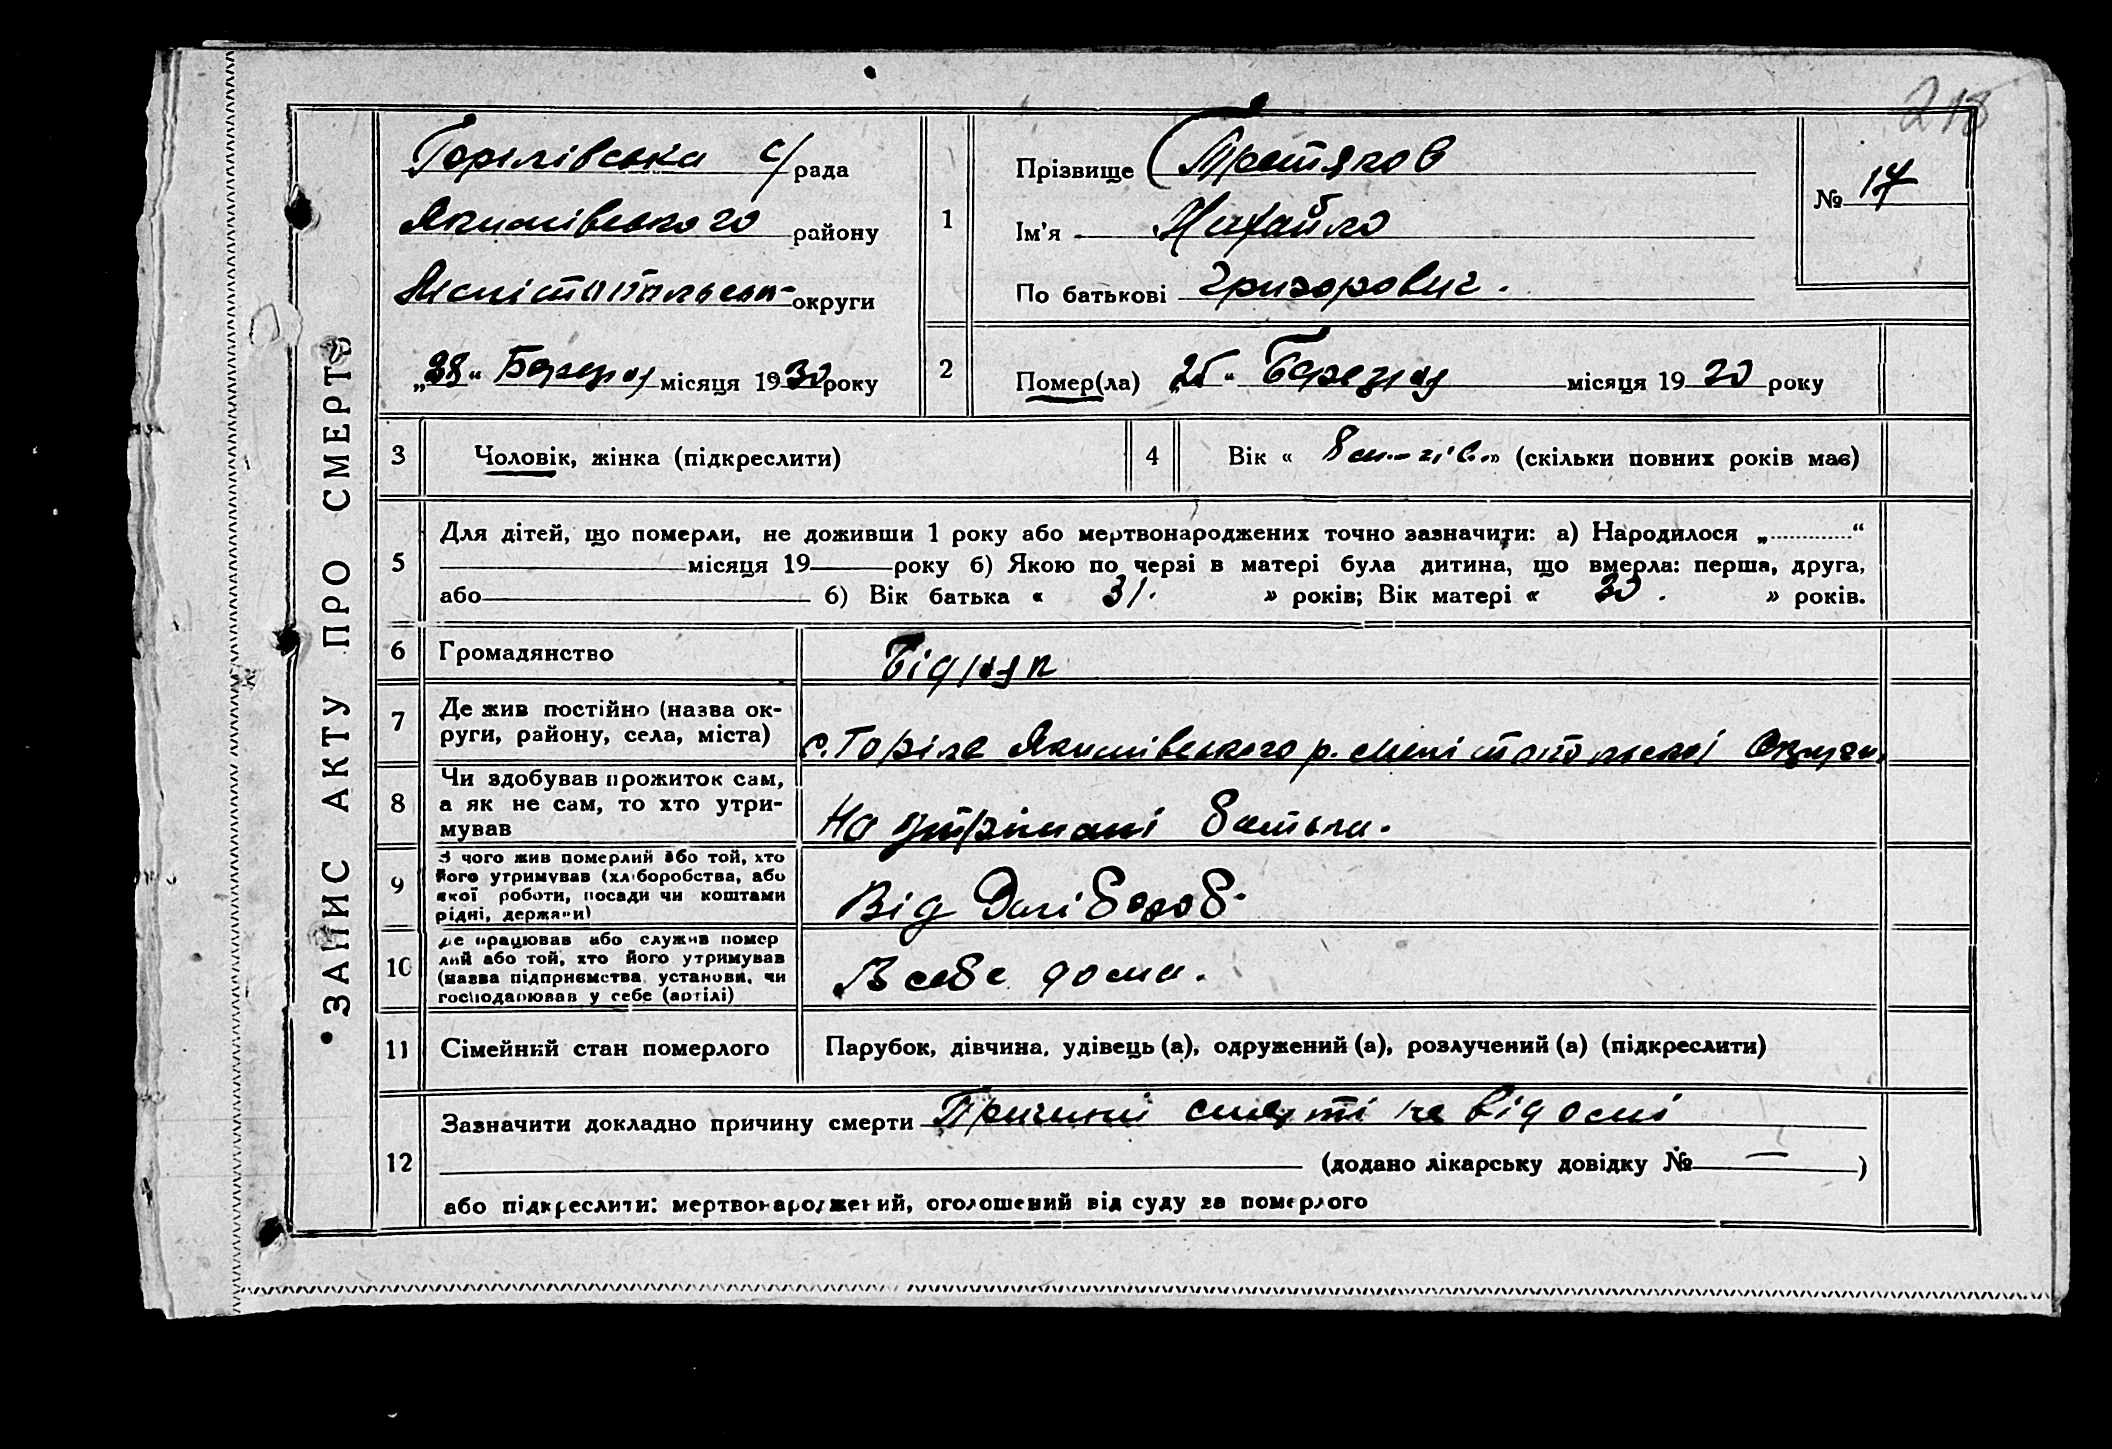 218
ЗАПИС АКТУ ПРО СМЕРТЬ
Горілівська с/рада
Якимівського району
Мелітопольсь- округи
„28“ Березня місяця 1930 року
1
Прізвище Третяков
Ім'я Михайло
По батькові Григорович.
№ 17
2
Помер(ла) „25“ Березня місяця 1930 року
3
Чоловік, жінка (підкреслити)
4
Вік « 8 » (скільки повних років має)
5
Для дітей, що померли, не доживши 1 року або мертвонароджених точно зазначити: а) Народилося „ “
місяця 19 року б) Якою по черзі в матері була дитина, що вмерла: перша, друга,
або б) Вік батька « 31. » років; Вік матері « 30. » років.
6
Громадянство
Бідняк
7
Де жив постійно (назва ок-
руги, району, села, міста)
с. Горіле Якимівського р. Мелітопольської Округи.
8
Чи здобував прожиток сам,
а як не сам, то хто утри-
мував
На утрімані батька.
9
З чого жив померлий або той, хто
його утримував (хліборобства, або
якої роботи, посади чи коштами
рідні, держави)
Від
10
Де працював або служив помер
лий або той, хто його утримував
(назва підприємства, установи, чи
господарював у себе (артілі)
В себе дома.
11
Сімейний стан померлого
Парубок, дівчина, удівець (а), одружений (а), розлучений (а) (підкреслити)
12
Зазначити докладно причину смерти Причині смерті не відомі
(додано лікарську довідку № — )
або підкреслити: мертвонароджений, оголошений від суду за померлого